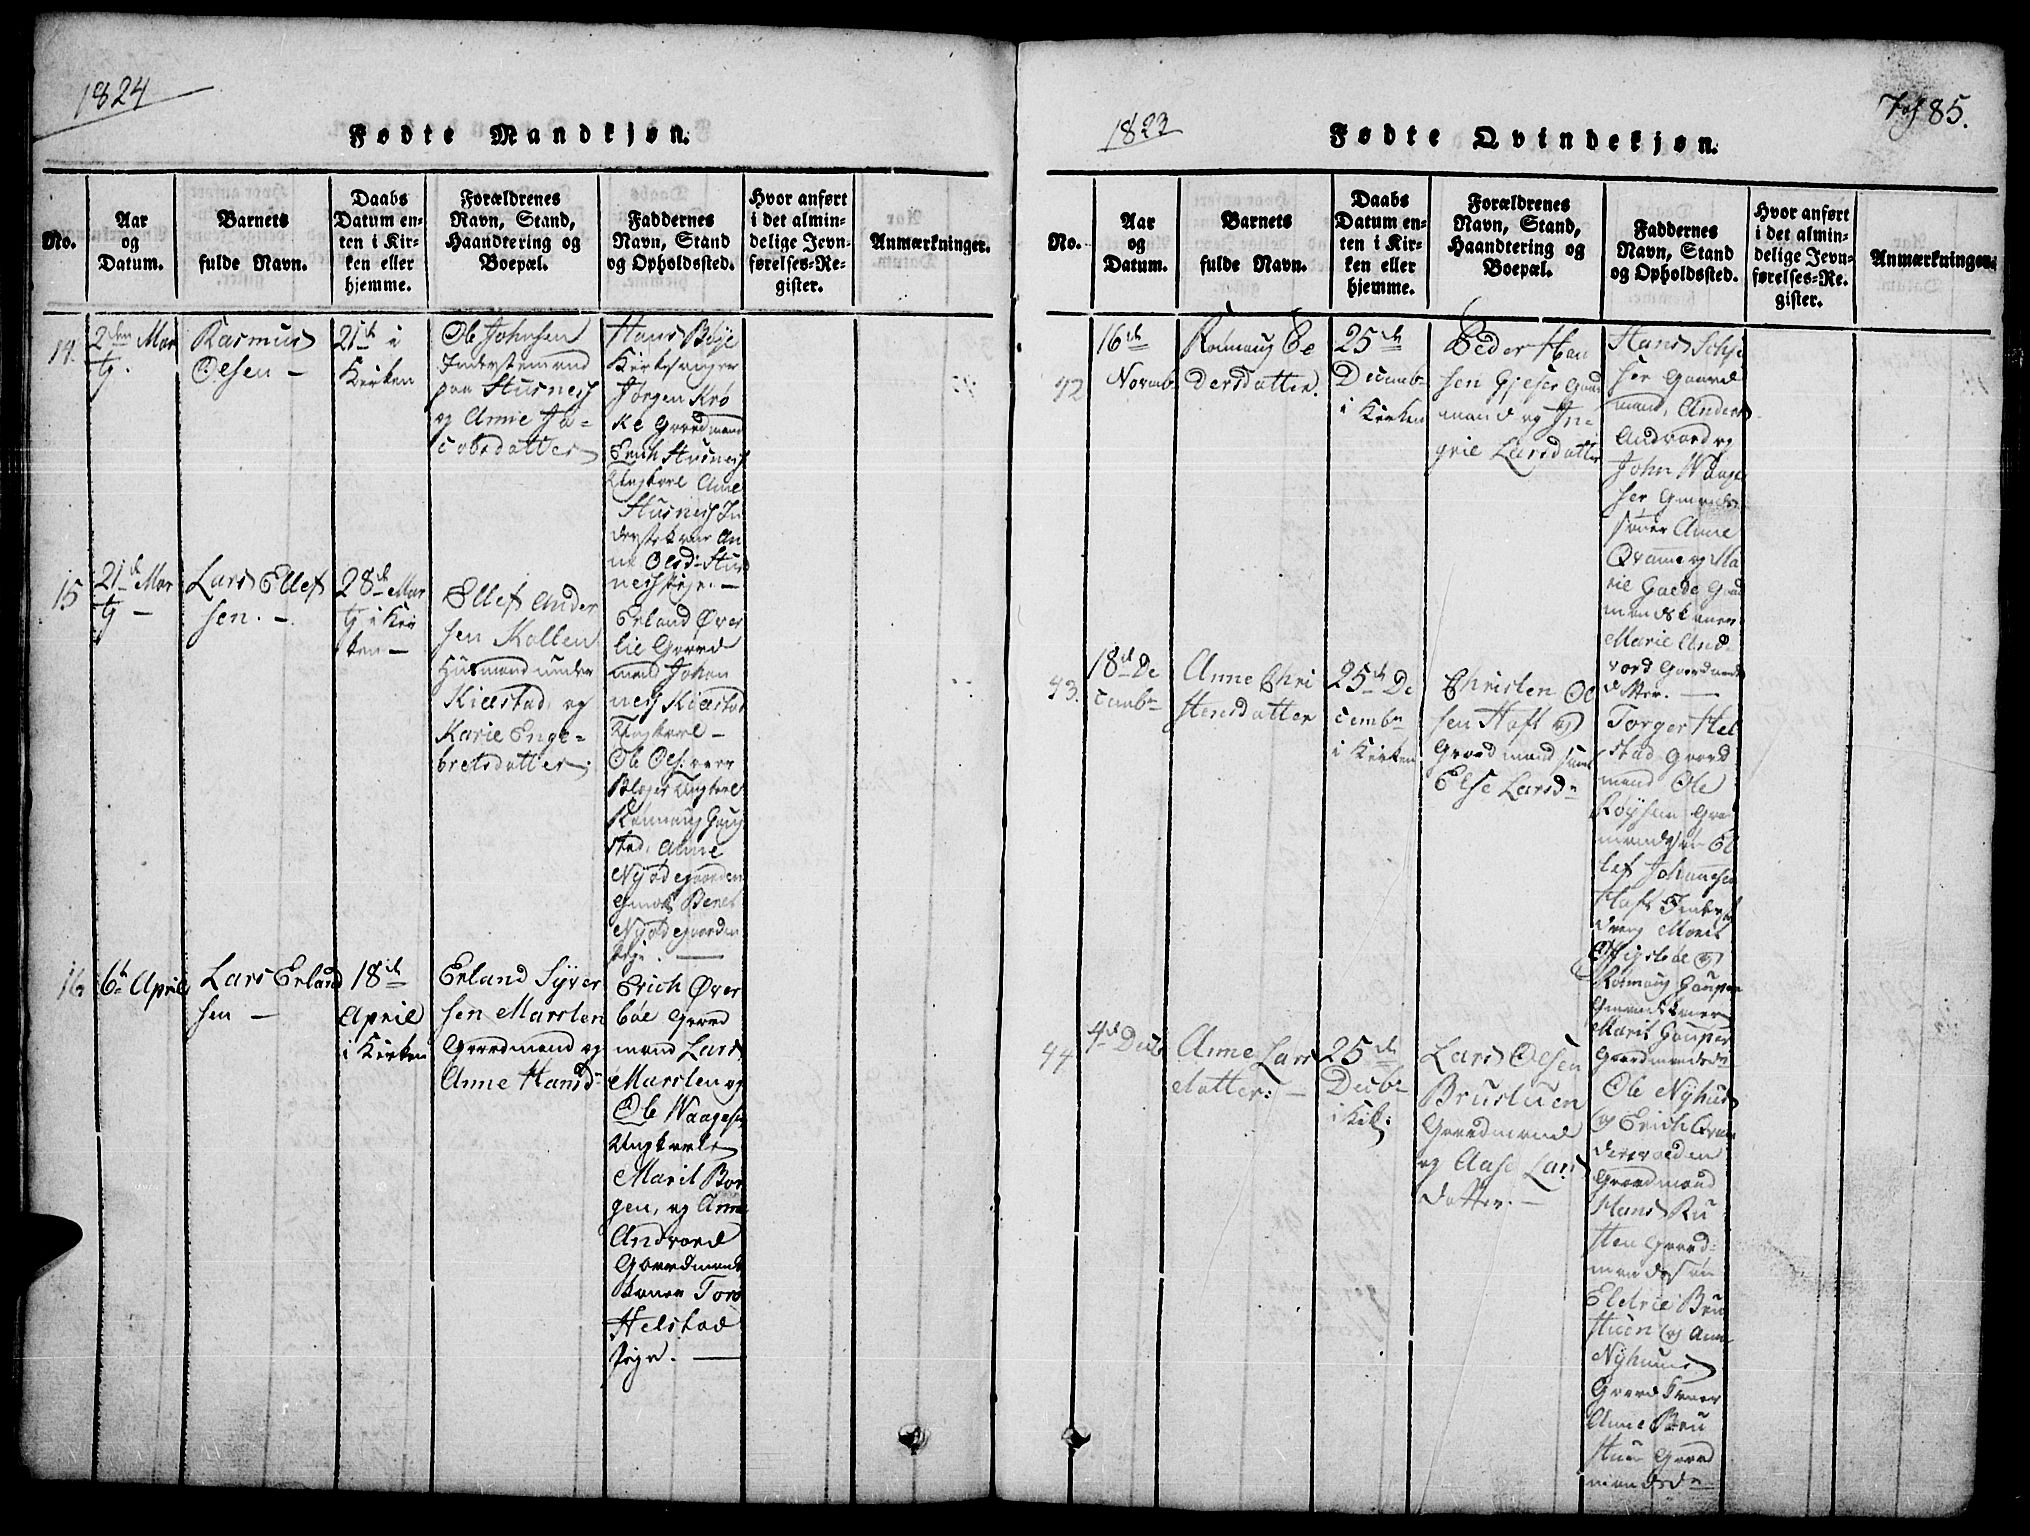 1824
Fødte Mandkjøn.
No.
Aar
og
Datum.
Barnets
fulde Navn.
Daabs
Datum en-
ten i Kir-
ken eller
hjemme.
Forældrenes
Navn, Stand,
Haandtering og
Boepæl.
Faddernes
Navn, Stand
og Opholdssted.
Hvor anført
i det almin-
delige Jevn-
førelses-Re-
gister.
Anmærkninger.
14.
2den Mar
tj.
Rasmus
Olsen –
21de i
Kirken
Ole Johnsen
Inderstemand
paa Stusnes
og Anne Ja-
cobsdatter
Hans Böje
Kirkesanger
Jörgen Krö
ke Gaardmand
Erich Stusnes
Ungkarl Ane
Stusnes In
derstekone An
ne Olsd: Stus
nes Pige. –
15
21de Mar
tj –
Lars Ellef
sen. –
28de Mar
tj i Kir
ken –
Ellef Ander
sen Kollen
Husmand under
Kiæstad og
Karie Enge-
bretsdatter
Erland Över
lie Gaard
mand Johan
nes Kiæstad
Ungkarl –
Ole Ols:
Ungkarl
Ronnaug Haug
stad, Anne
Nÿødegaarden
Beret
Nÿødegaarden
Pige. –
16
6te April
Lars Erland
sen –
18de
April
i Kirken
Erland Sÿver
sen Marsten
Gaardmand og
Anne Hansd
Erich Över
böe Gaard
mand Lars
Marsten og
Ole Waagesen
Ungkarle
Marit Bor
gen, og Anne
Andvord
Gaardmands
koner Tore
Helstad
Pige. –
1823
Fødte Qvindekjøn.
Fol 85.
No.
Aar
og
Datum.
Barnets
fulde Navn.
Daabs
Datum en-
ten i Kir-
ken eller
hjemme.
Forældrenes
Navn, Stand,
Haandtering og
Boepæl.
Faddernes
Navn, Stand
og Opholdssted.
Hvor anført
i det almin-
delige Jevn-
førelses-Re-
gister.
Anmærkninger.
42
16de
Novmb
Ronnaug Pe
dersdatter.
25de
Decemb
i Kirken
Peder Han
sen Gjeser Gaard
mand og In-
grie Larsdatter
Hans Schje
ser Gaard
mand, Anders
Andvord og
John Waage
ser Gaards
söner Anne
Qvamme og Ma
rie Gaarde Gaard
mandskoner
Marie And
vord Gaardmands
datter. –
43.
18de De
cembr
Anne Chri
stensdatter
25de De
cembr
i Kirken
Christen Ol
sen Hoft og
Gaardmand samt
Else Larsd
Torger Hel
stad Gaard
mand Ole
Röÿsem Gaard
mandssön El
lef Johannesen
Hoft
Marit
og
Ronnaug Gauper
Gaardmandskoner
Marit Gauper
Gaardmandsd
44
4de Decb
Anne Lars
datter: –
25de
Decbr
i Kik:
Lars Olsen
Brustuen
Gaardmand
og Aase Lars
datter. –
Ole Nÿhus
og Erich
Gaardmænd
Hans Ru
sten Gaard
mandssön
Eldrie Bru
stuen og Anne
Nÿhuus
Gaardkoner
Anne Bru
stuen Gaard
mandsd